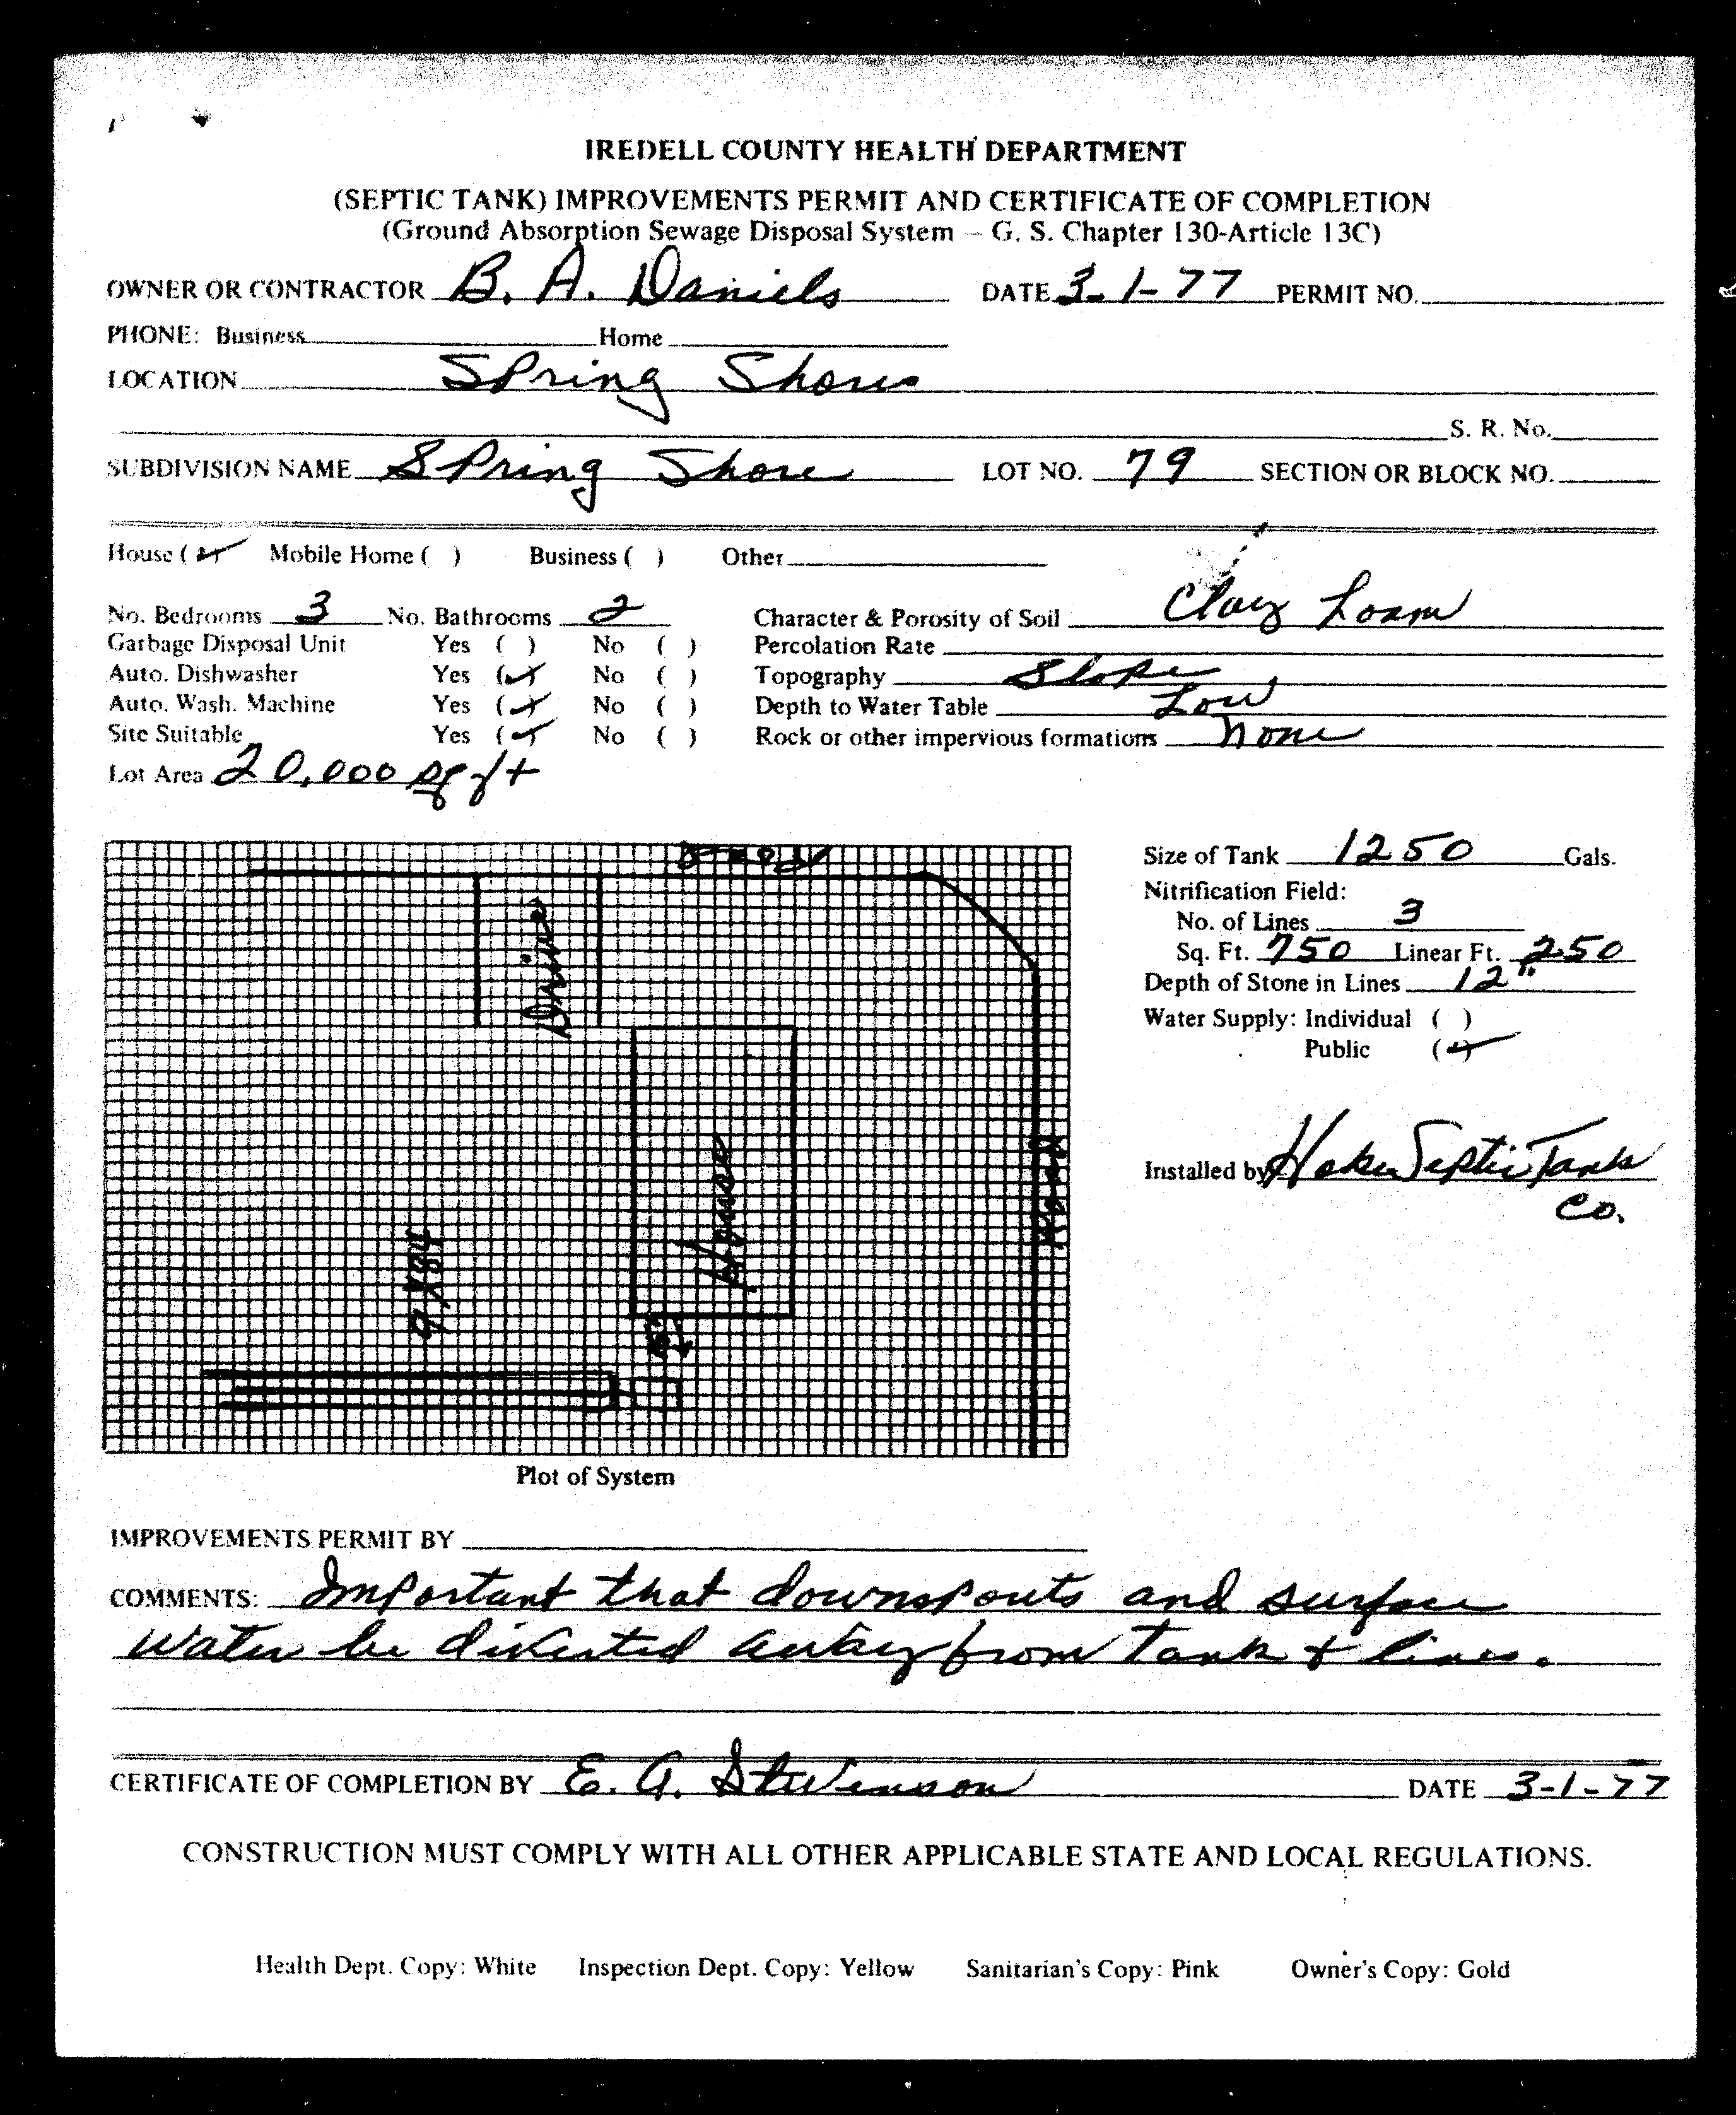 IREDELL COUNTY HEALTH DEPARTMENT
(SEPTIC TANK) IMPROVEMENTS PERMIT AND CERTIFICATE OF COMPLETION
(Ground Absorption Sewage Disposal System – G. S. Chapter 130-Article 13C)
OWNER OR CONTRACTOR B. A. Daniels DATE 3-1-77 PERMIT NO.
PHONE: Business Home
LOCATION Spring Shores
S. R. No.
SUBDIVISION NAME Spring Shore LOT NO. 79 SECTION OR BLOCK NO.
House (✓) Mobile Home ( ) Business ( ) Other
No. Bedrooms 3 No. Bathrooms 2 Character & Porosity of Soil Clay Loam
Garbage Disposal Unit Yes ( ) No ( ) Percolation Rate
Auto. Dishwasher Yes (✓) No ( ) Topography Slope
Auto. Wash. Machine Yes (✓) No ( ) Depth to Water Table Low
Site Suitable Yes (✓) No ( ) Rock or other impervious formations None
Lot Area 20,000 sq ft
Road
Drive
House
Road
9X84
15'
Plot of System
Size of Tank 1250 Gals.
Nitrification Field:
No. of Lines 3
Sq. Ft. 750 Linear Ft. 250
Depth of Stone in Lines 12"
Water Supply: Individual ( )
Public (✓)
Installed by Septic Tank
Co.
IMPROVEMENTS PERMIT BY
COMMENTS: Important that downspouts and surface
water be diverted away from tank & lines.
CERTIFICATE OF COMPLETION BY E. A. Stevenson DATE 3-1-77
CONSTRUCTION MUST COMPLY WITH ALL OTHER APPLICABLE STATE AND LOCAL REGULATIONS.
Health Dept. Copy: White Inspection Dept. Copy: Yellow Sanitarian's Copy: Pink Owner's Copy: Gold